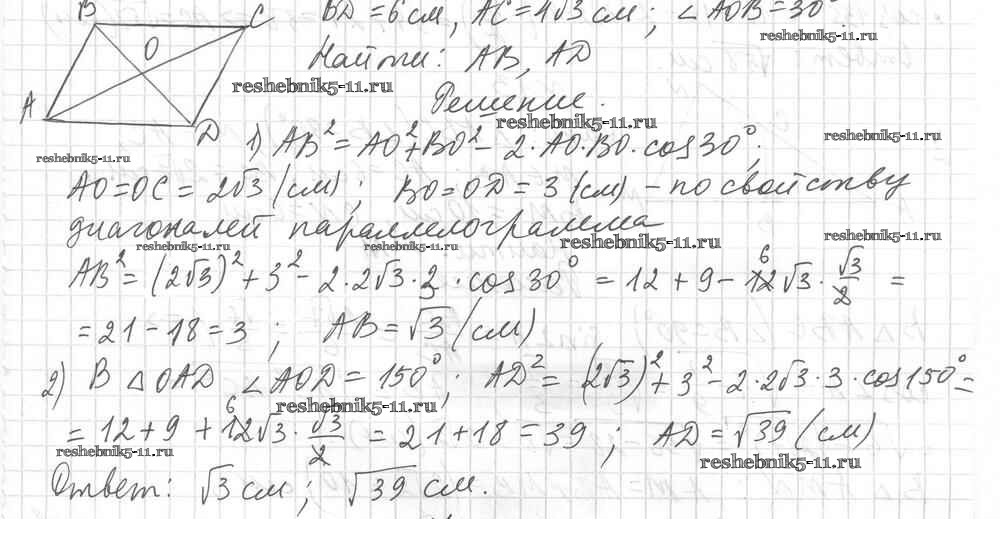 B C
BD = 6 см, AC = 4√3 см; ∠AOB = 30°
reshebnik5-11.ru
O
Найти: AB, AD
reshebnik5-11.ru
A
Решение.
D
reshebnik5-11.ru
1) AB² = AO² + BO² - 2·AO·BO·cos30°;
reshebnik5-11.ru
reshebnik5-11.ru
AO = OC = 2√3 (см); BO = OD = 3 (см) - по свойству
диагоналей параллелограмма
reshebnik5-11.ru reshebnik5-11.ru reshebnik5-11.ru reshebnik5-11.ru
AB² = (2√3)² + 3² - 2·2√3·3·cos30° = 12 + 9 - 12 6 √3·√3/2 =
= 21 - 18 = 3; AB = √3 (см)
2) В △OAD ∠AOD = 150°; AD² = (2√3)² + 3² - 2·2√3·3·cos150° =
reshebnik5-11.ru
= 12 + 9 + 12 6 √3·√3/2 = 21 + 18 = 39; AD = √39 (см)
reshebnik5-11.ru reshebnik5-11.ru
Ответ: √3 см; √39 см.